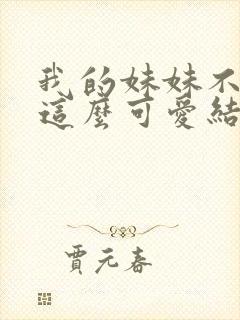 我的妹妹不
這麼可愛結
賈元春